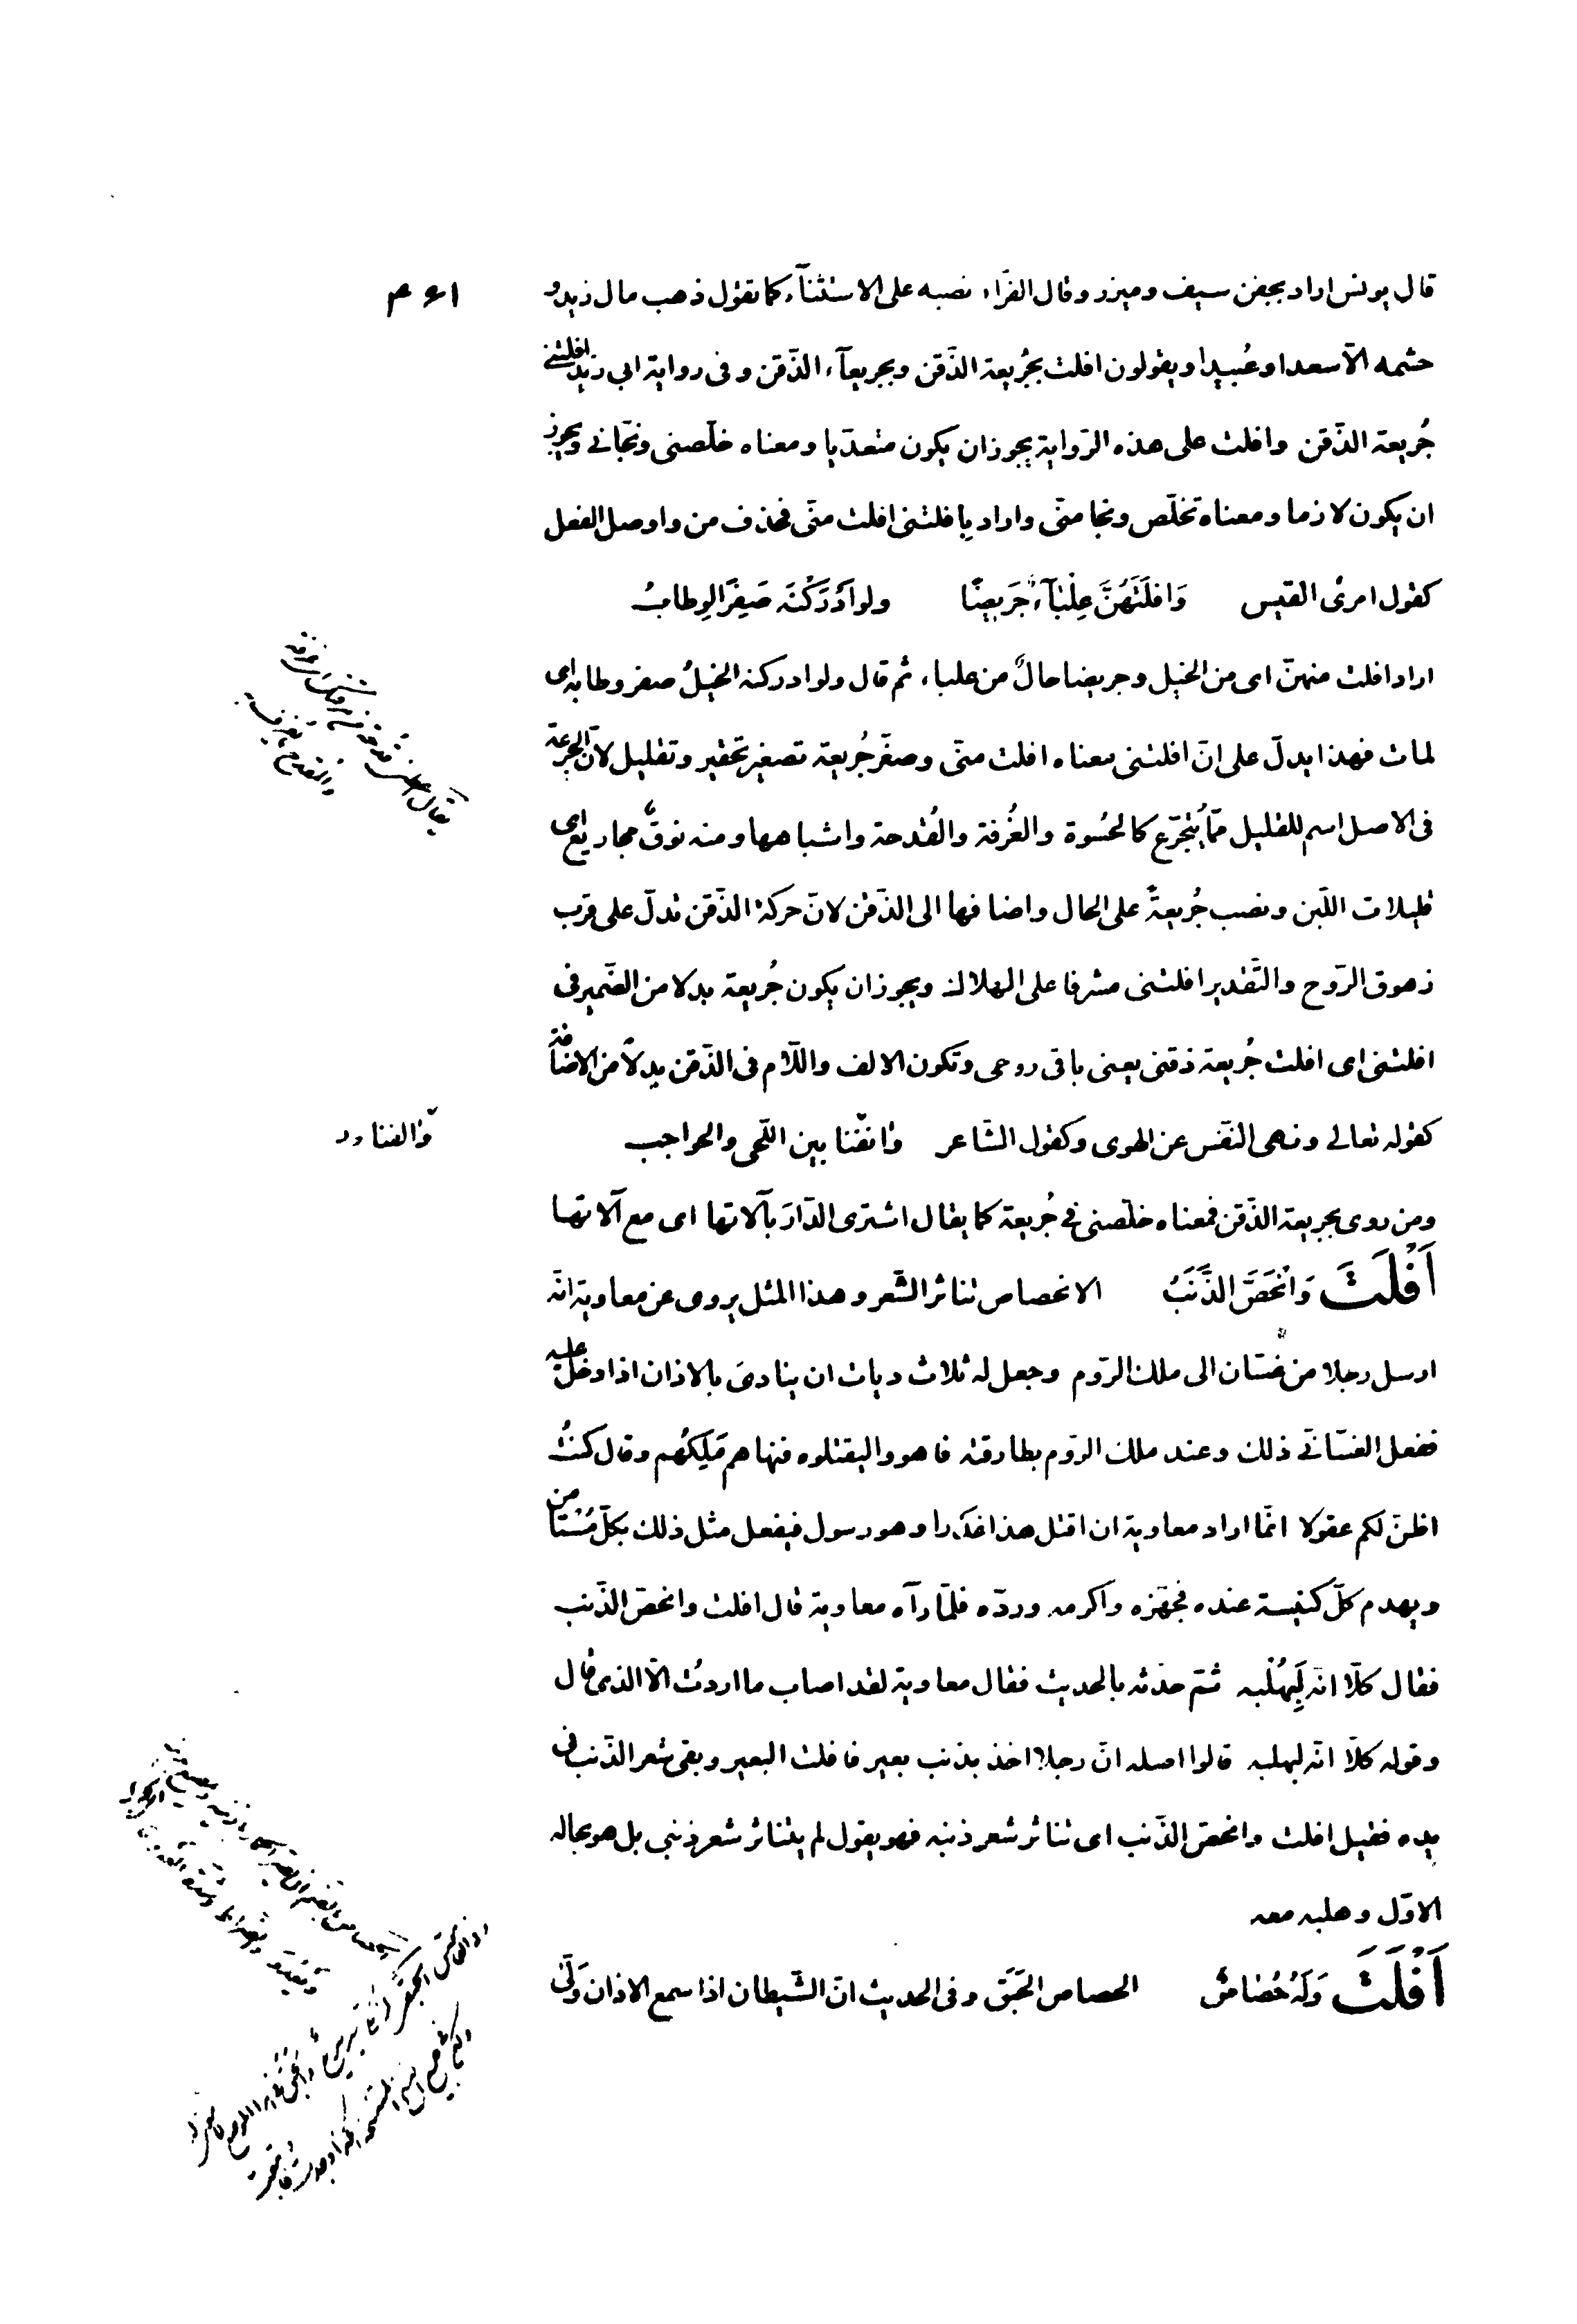 قال يونس اراد بجفن سيف وميزر وقال الفرّاء نصبه على الاستثنآء كما تقول ذهب مال زيد و
حشمه الّا سعدا وعُبيدا ويقولون افلت بجُريعة الذّقن وبجريعآء الذّقن وفى رواية ابى زيد افلتنى
جُريعة الذّقن وافلت على هذه الرّواية يجوز ان يكون متعدّيا ومعناه خلّصنى ونجّانى ويجوز
ان يكون لازما ومعناه تخلّص ونجا منّى واراد بافلتنى افلت منّى فحذف من واوصل الفعل
كقول امرئ القيس وَافلَتَهُنَّ عِلْبَآءٌ جَرِيضًا ولو اَدْرَكْنَه صَفِرَ الوِطابُ
اراد افلت منهنّ اى من الخيل وجريضا حالٌ من علباء ثم قال ولو ادركنه الخيلُ صفر وطابه اى
لمات فهذا يدلّ على انّ افلتنى معناه افلت منّى وصغّر جُريعة تصغير تحقير وتقليل لانّ الجرعة
فى الاصل اسم للقليل ممّا يُتجرّع كالحُسوة والغُرفة والقُدحة واشباهها ومنه نوقٌ مجاريع اى
قليلات اللّبن ونصب جُريعةً على الحال واضافها الى الذّقن لانّ حركة الذّقن تدلّ على قرب
زهوق الرّوح والتّقدير افلتنى مشرفا على الهلاك ويجوز ان يكون جُريعة بدلا من الضّمير فى
افلتنى اى افلت جُريعة ذقنى يعنى باقى روحى وتكون الالف واللّام فى الذّقن بدلًا من الاضافة
كقوله تعالى ونهى النّفس عن الهوى وكقول الشّاعر وانفنا بين اللّحى والحواجب
ومن روى بجريعة الذّقن فمعناه خلّصنى فى جُريعة كما يقال اشترى الدّارَ بآلاتها اى مع آلاتها
اَفْلَتَ وَانْحَصَّ الذَّنَبُ الانحصاص تناثر الشّعر وهذا المثل يروى عن معاوية انّه
ارسل رجلا من غسّان الى ملك الرّوم وجعل له ثلاث ديات ان ينادىَ بالاذان اذا دخل عليه
ففعل الغسّانى ذلك وعند ملك الرّوم بطارقته فاهووا ليقتلوه فنهاهم مَلِكُهم وقال كنتُ
اظنّ لكم عقولا انّما اراد معاوية ان اقتل هذا غدرا وهو رسول فيفعل مثل ذلك بكلّ مُستأمن
ويهدم كلّ كنيسة عنده فجهّزه واكرمه وردّه فلمّا رآه معاوية قال افلت وانحصّ الذّنب
فقال كلّا انّه لَبِهُلْبه ثمّ حدّثه بالحديث فقال معاوية لقد اصاب ما اردتُ الّا الذى قال
وقوله كلّا انّه لبهلبه قالوا اصله انّ رجلا اخذ بذنب بعير فافلت البعير وبقى شعر الذّنب فى
يده فقيل افلت وانحصّ الذّنب اى تناثر شعر ذنبه فهو يقول لم يتناثر شعر ذنبى بل هو بحاله
الاوّل وهلبه معه
اَفْلَتَ وَلَهُ حُصَاصٌ الحصاص الحَبَق وفى الحديث انّ الشّيطان اذا سمع الاذان ولّى